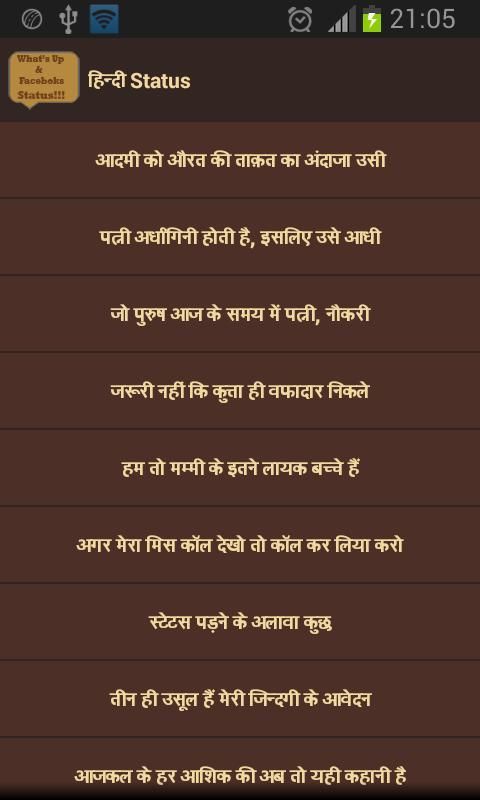 21:05
What's Up
&
Faceboks
Status!!!
हिन्दी Status
आदमी को औरत की ताक़त का अंदाजा उसी
पत्नी अर्धांगिनी होती है, इसलिए उसे आधी
जो पुरुष आज के समय में पत्नी, नौकरी
जरूरी नहीं कि कुत्ता ही वफादार निकले
हम तो मम्मी के इतने लायक बच्चे हैं
अगर मेरा मिस कॉल देखो तो कॉल कर लिया करो
स्टेटस पड़ने के अलावा कुछ
तीन ही उसूल हैं मेरी जिन्दगी के आवेदन
आजकल के हर आशिक की अब तो यही कहानी है